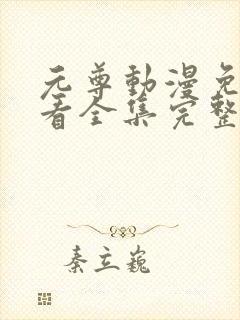 元尊動漫免
看全集完整
秦立巍